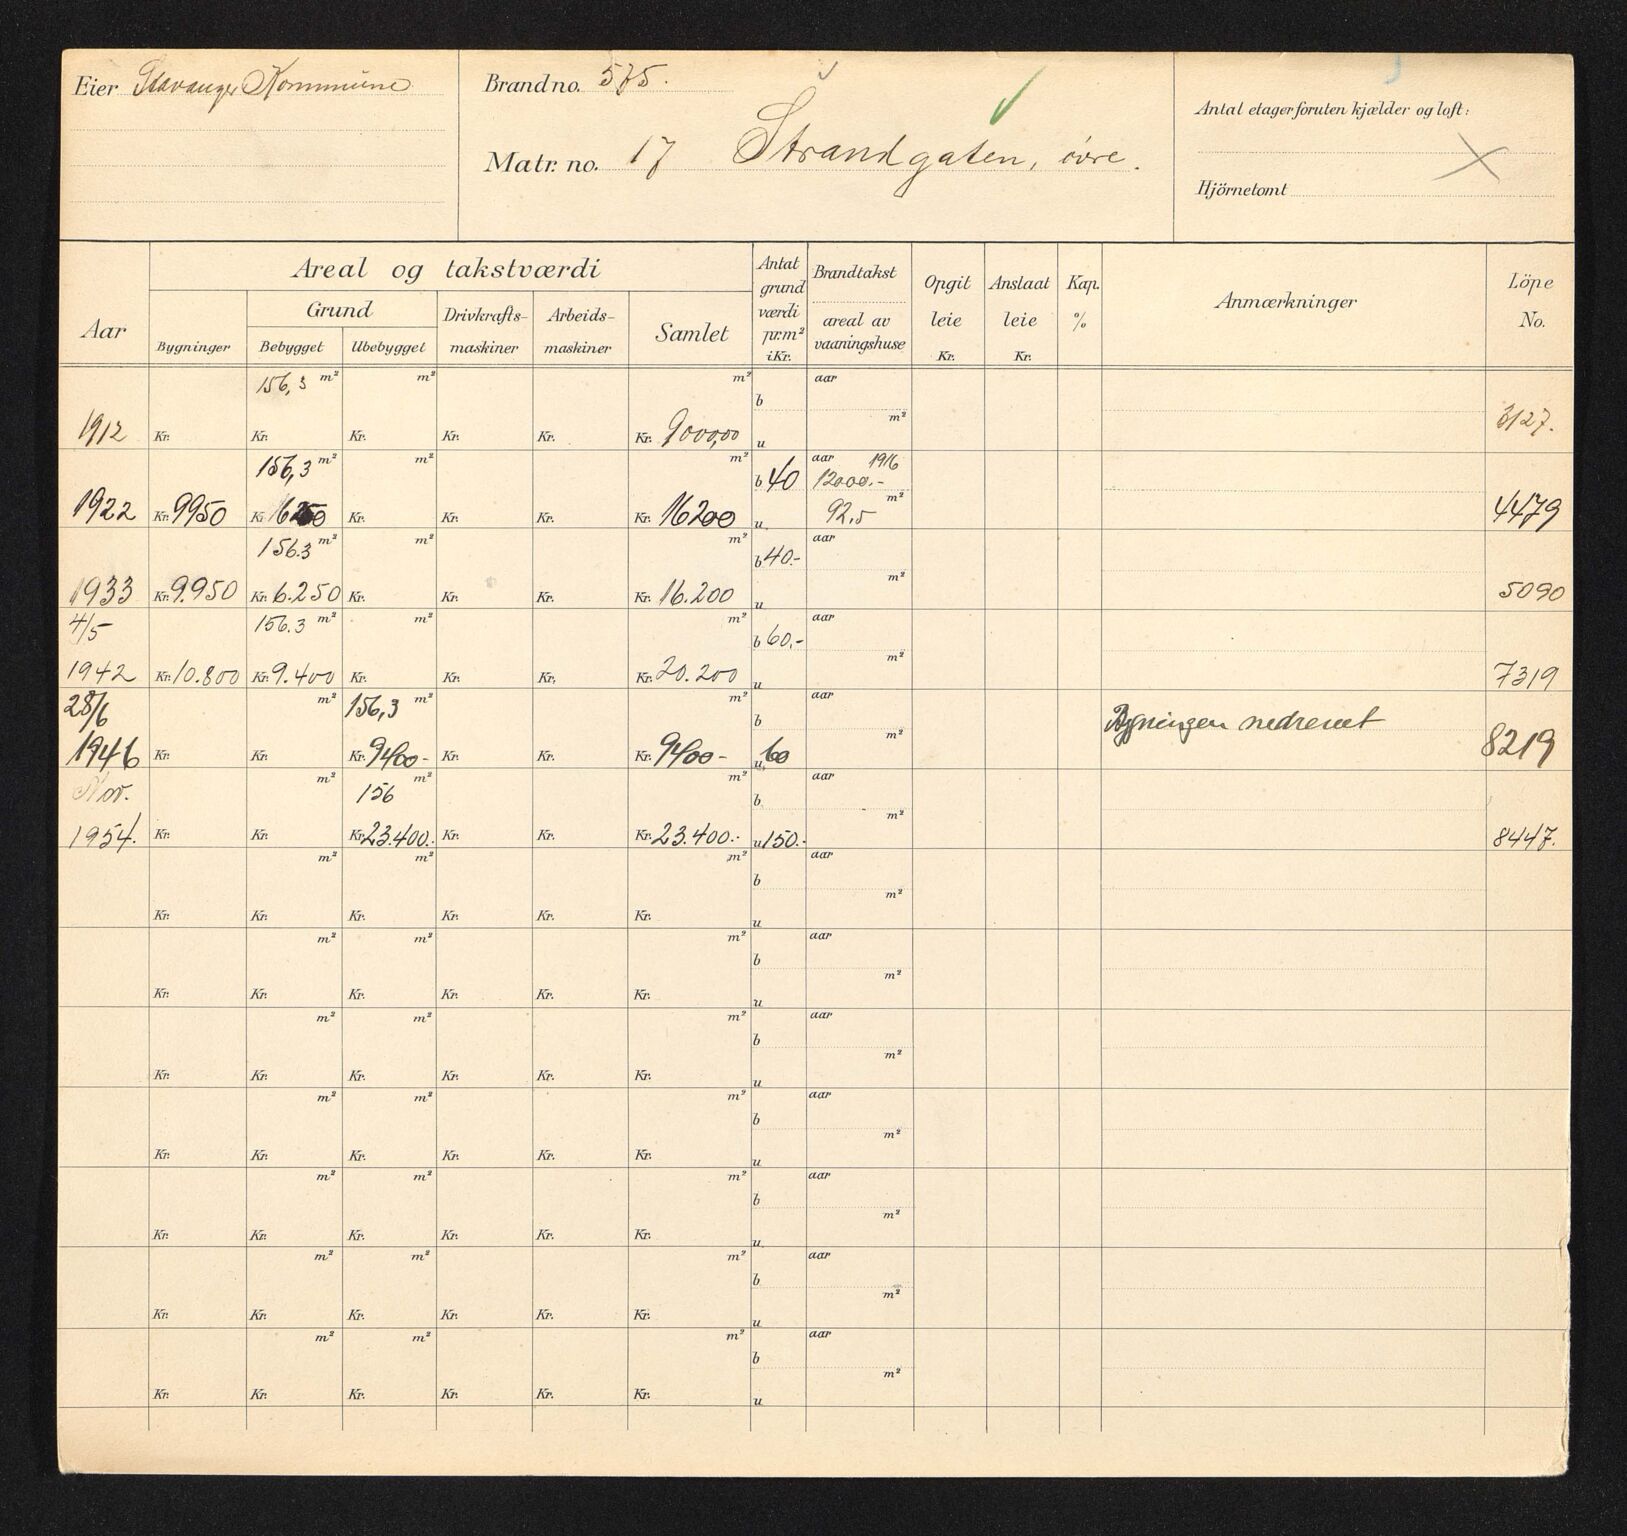 Eier Stavanger Kommune
Brand no. 575.
Matr. no. 17 Strandgaten, övre.
Antal etager foruten kjælder og loft:
Hjörnetomt
Aar
Areal og takstværdi
Bygninger
Grund
Bebygget
Ubebygget
Drivkrafts-
maskiner
Arbeids-
maskiner
Samlet
Antat
grund
værdi
pr.m²
i Kr.
Brandtakst
areal av
vaaningshuse
Opgit
leie
Kr.
Anslaat
leie
Kr.
Kap.
%
Anmærkninger
Löpe
No.
156,3 m² m² m² b aar
m²
1912 Kr. Kr. Kr. Kr. Kr. Kr. 9000,00 u 3127.
156,3 m² m² m² b 40 aar 1916
12000.-
m²
1922 Kr. 9950 Kr. 6250 Kr. Kr. Kr. Kr. 16200 u 92,5 4479
156.3 m² m² m² b 40.- aar
m²
1933 Kr. 9.950 Kr. 6.250 Kr. Kr. Kr. Kr. 16.200 u 5090
4/5 156.3 m² m² m² b 60,- aar
m²
1942 Kr. 10.800 Kr. 9.400 Kr. Kr. Kr. Kr. 20.200 u 7319
28/6 m² 156,3 m² m² b aar Bygningen nedrevet
m²
1946 Kr. Kr. Kr. 9400- Kr. Kr. Kr. 9400- u 60 8219
Nov. m² 156 m² m² b aar
m²
1954. Kr. Kr. Kr. 23.400.- Kr. Kr. Kr. 23.400.- u 150.- 8447.
m² m² m² aar
b
m²
Kr. Kr. Kr. Kr. Kr. Kr. u
m² m² m² aar
b
m²
Kr. Kr. Kr. Kr. Kr. Kr. u
m² m² m² aar
b
m²
Kr. Kr. Kr. Kr. Kr. Kr. u
m² m² m² aar
b
m²
Kr. Kr. Kr. Kr. Kr. Kr. u
m² m² m² aar
b
m²
Kr. Kr. Kr. Kr. Kr. Kr. u
m² m² m² aar
b
m²
Kr. Kr. Kr. Kr. Kr. Kr. u
m² m² m² aar
b
m²
Kr. Kr. Kr. Kr. Kr. Kr. u